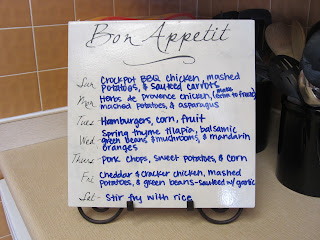 Bon Appetit
Sun Crockpot BBQ chicken, mashed
potatoes, & sauteed carrots
Mon Herbs de provence chicken, (make extra to freeze)
mashed potatoes, & asparagus
Tues Hamburgers, corn, fruit
Spring thyme tilapia, balsamic
Wed green beans & mushrooms, & mandarin
oranges
Thurs Pork chops, sweet potatoes, & corn
Fri Cheddar & cracker chicken, mashed
potatoes, & green beans - sauteed w/ garlic
Sat - Stir fry with rice